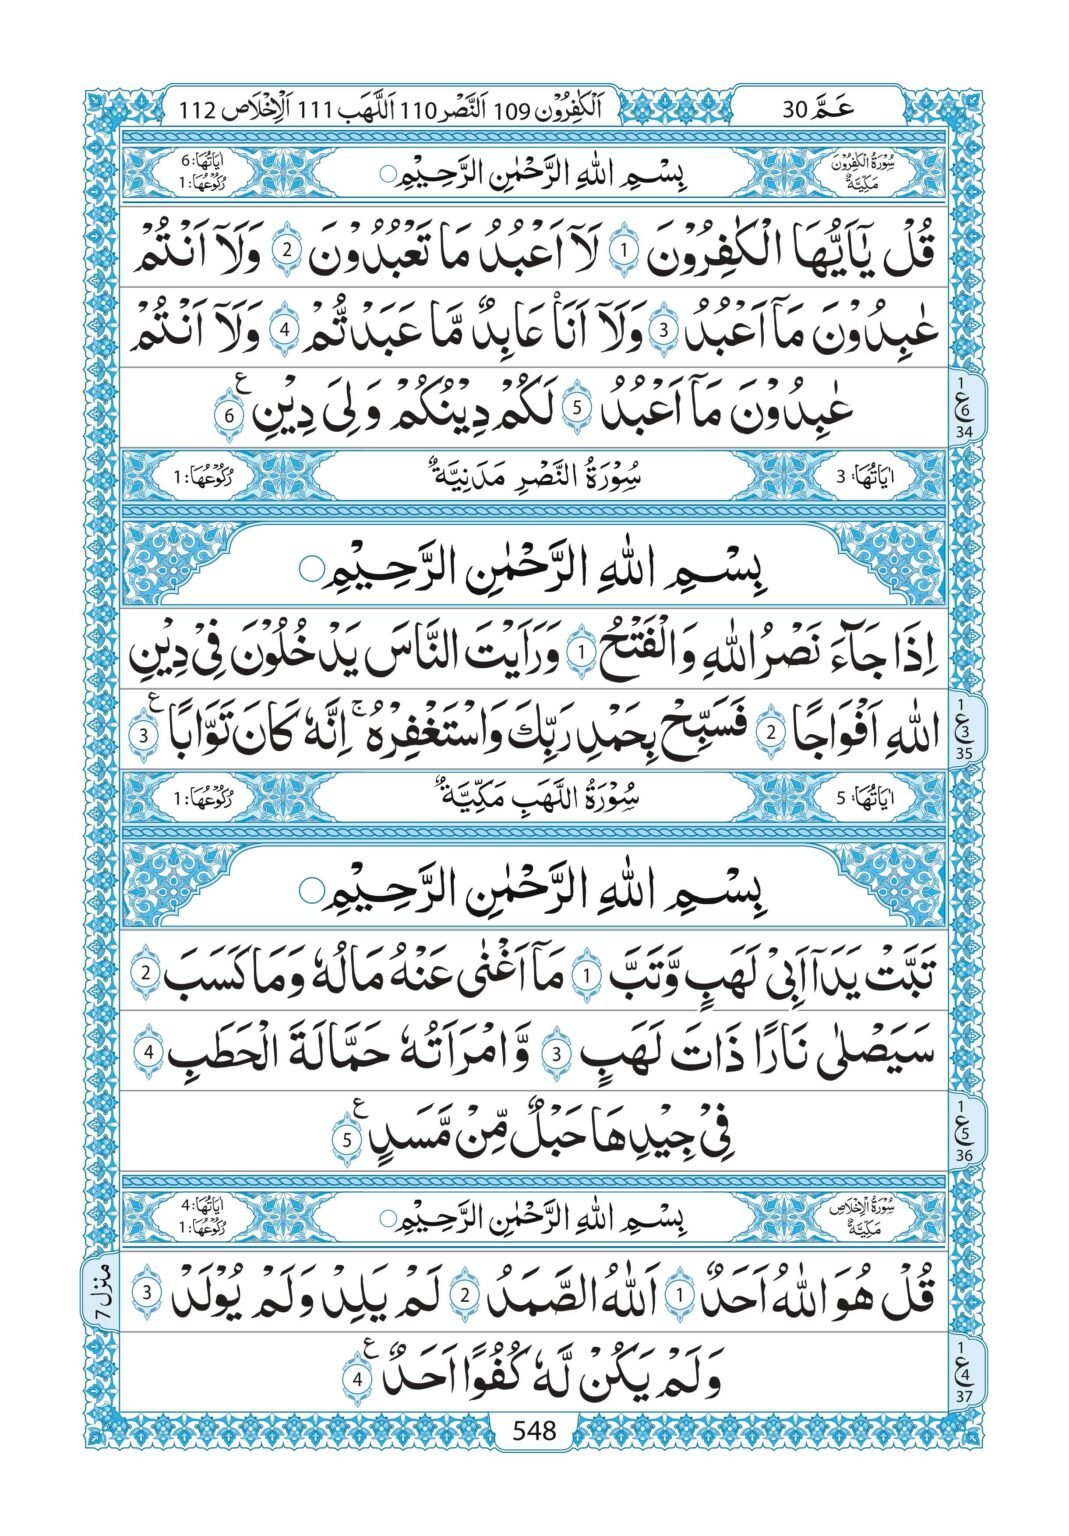 عَمَّ 30
اَلْكٰفِرُوْن 109 اَلنَّصْر 110 اَللَّهَب 111 اَلْاِخْلَاص 112
سُوْرَةُ الْكٰفِرُوْنَ
مَكِّيَّةٌ
بِسْمِ اللّٰهِ الرَّحْمٰنِ الرَّحِيْمِ
اٰيَاتُهَا: 6
رُكُوْعُهَا: 1
قُلْ يٰٓاَيُّهَا الْكٰفِرُوْنَ 1 لَآ اَعْبُدُ مَا تَعْبُدُوْنَ 2 وَلَآ اَنْتُمْ
عٰبِدُوْنَ مَآ اَعْبُدُ 3 وَلَآ اَنَا۠ عَابِدٌ مَّا عَبَدْتُّمْ 4 وَلَآ اَنْتُمْ
عٰبِدُوْنَ مَآ اَعْبُدُ 5 لَكُمْ دِيْنُكُمْ وَلِىَ دِيْنِ ع 6
1
ع
6
34
اٰيَاتُهَا: 3
سُوْرَةُ النَّصْرِ مَدَنِيَّةٌ
رُكُوْعُهَا: 1
بِسْمِ اللّٰهِ الرَّحْمٰنِ الرَّحِيْمِ
اِذَا جَآءَ نَصْرُ اللّٰهِ وَالْفَتْحُ 1 وَرَاَيْتَ النَّاسَ يَدْخُلُوْنَ فِىْ دِيْنِ
اللّٰهِ اَفْوَاجًا 2 فَسَبِّحْ بِحَمْدِ رَبِّكَ وَاسْتَغْفِرْهُ ۚ اِنَّهٗ كَانَ تَوَّابًا ع 3
1
ع
3
35
اٰيَاتُهَا: 5
سُوْرَةُ اللَّهَبِ مَكِّيَّةٌ
رُكُوْعُهَا: 1
بِسْمِ اللّٰهِ الرَّحْمٰنِ الرَّحِيْمِ
تَبَّتْ يَدَآ اَبِىْ لَهَبٍ وَّتَبَّ 1 مَآ اَغْنٰى عَنْهُ مَالُهٗ وَمَا كَسَبَ 2
سَيَصْلٰى نَارًا ذَاتَ لَهَبٍ 3 وَّامْرَاَتُهٗ حَمَّالَةَ الْحَطَبِ 4
فِىْ جِيْدِهَا حَبْلٌ مِّنْ مَّسَدٍ ع 5
1
ع
5
36
سُوْرَةُ الْاِخْلَاصِ
مَكِّيَّةٌ
بِسْمِ اللّٰهِ الرَّحْمٰنِ الرَّحِيْمِ
اٰيَاتُهَا: 4
رُكُوْعُهَا: 1
قُلْ هُوَ اللّٰهُ اَحَدٌ 1 اَللّٰهُ الصَّمَدُ 2 لَمْ يَلِدْ وَلَمْ يُوْلَدْ 3
منزل 7
وَلَمْ يَكُنْ لَّهٗ كُفُوًا اَحَدٌ ع 4
1
ع
4
37
548